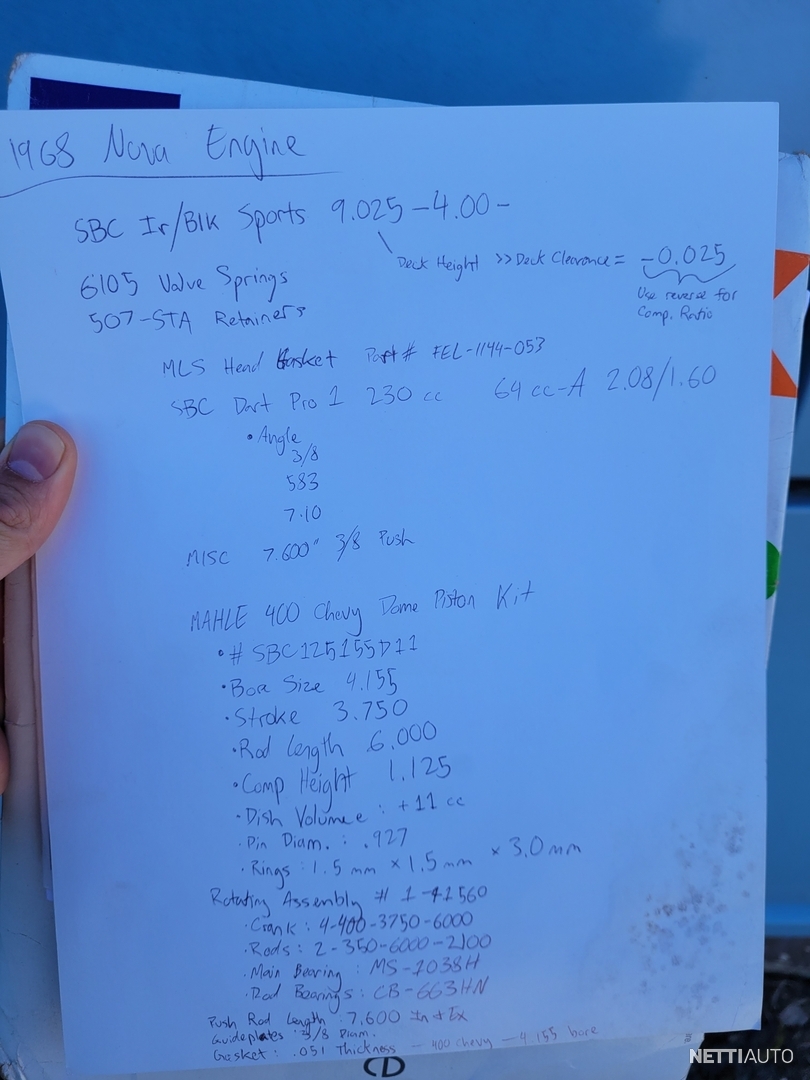 1968 Nova Engine
SBC Ir/Blk Sports 9.025-4.00-
Deck Height >> Deck Clearance = -0.025
Use reverse for
Comp. Ratio
6105 Valve Springs
507-STA Retainers
MLS Head Gasket Part# FEL-1144-053
SBC Dart Pro 1 230 cc 64 cc-A 2.08/1.60
• Angle
3/8
583
7.10
MISC 7.600" 3/8 Push
MAHLE 400 Chevy Dome Piston Kit
• # SBC125155D11
• Bore Size 4.155
• Stroke 3.750
• Rod Length 6.000
• Comp Height 1.125
• Dish Volume : +11 cc
• Pin Diam. : .927
• Rings : 1.5 mm × 1.5 mm × 3.0 mm
Rotating Assembly # 1-41560
• Crank : 4-400-3750-6000
• Rods : 2-350-6000-2100
• Main Bearing : MS-1038H
• Rod Bearings : CB-663HN
Push Rod Length : 7,600 In & Ex
Guideplates 3/8 Diam.
Gasket : .051 Thickness - 400 Chevy - 4.155 bore
NETTIAUTO